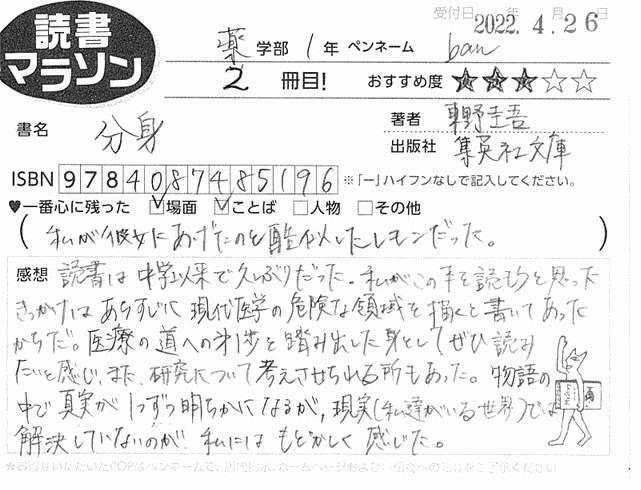 読書
マラソン
受付日 2022.年 4.月 26日
薬 学部 1 年 ペンネーム ban
2 冊目! おすすめ度 ★★★☆☆
書名 分身
著者 東野圭吾
出版社 集英社文庫
ISBN 9784087485196 ※「ー」ハイフンなしで記入してください。
♥一番心に残った ☑場面 ☑ことば □人物 □その他
(私が彼女にあげたのと酷似したレモンだった。)
感想 読書は中学以来で久しぶりだった。私がこの本を読もうと思った
きっかけはあらすじに現代医学の危険な領域を描くと書いてあった
からだ。医療の道への第1歩を踏み出した身としてぜひ読み
たいと感じ、また、研究について考えさせられる所もあった。物語の
中で真実が1つずつ明らかになるが、現実(私達がいる世界)では
解決していないのが、私にはもどかしく感じた。